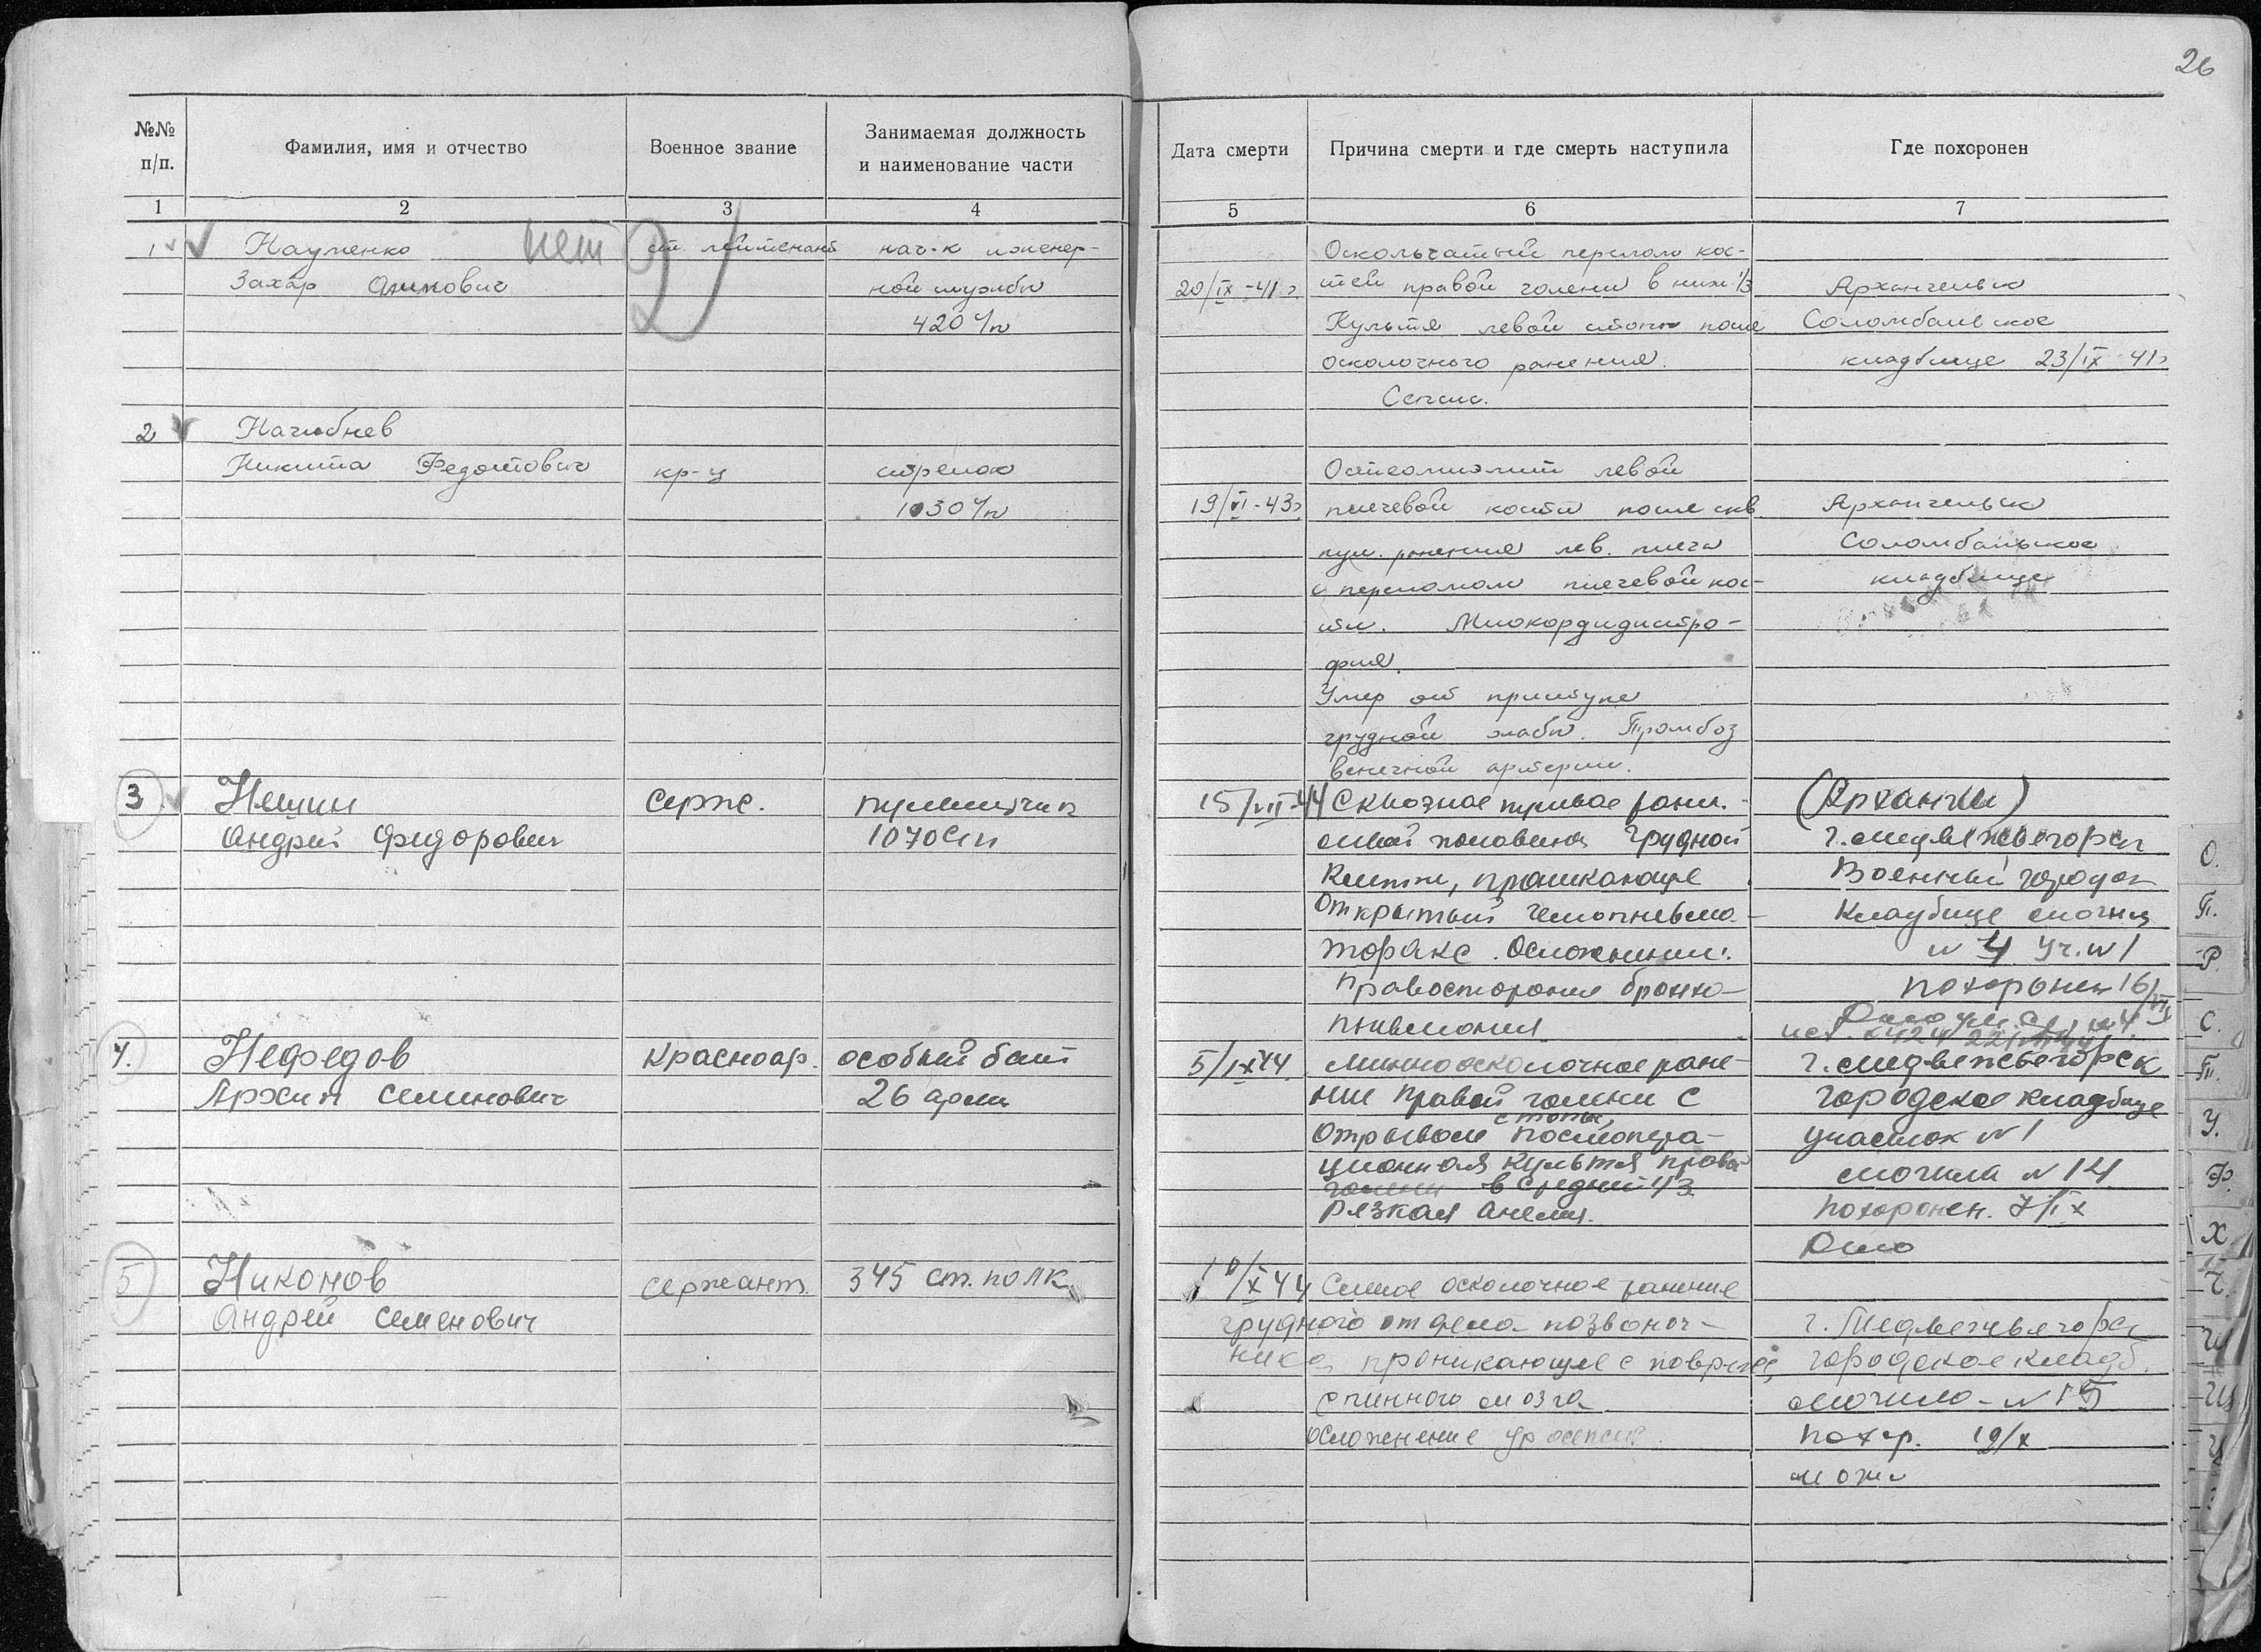 26
№№ п/п.
Фамилия, имя и отчество
Военное звание
Занимаемая должность
и наименование части
Дата смерти
Причина смерти и где смерть наступила
Где похоронен
1 2 3 4 5 6 7
1 Науменко нет ст. лейтенант нач-к инженер-
Захар Акимович ной службы
420 с/п
20/IX-41 г.
Оскольчатый перелом кос-
тей правой голени в ниж 1/3
Культя левой стопы после
осколочного ранения.
Сепсис.
Архангельск
Соломбальское
кладбище 23/IX 41 г
2
Никита Федотович кр-ц стрелок
1030 с/п
19/VI-43 г
Остеомиэлит левой
плечевой кости после скв.
пул. ранения лев. плеча
с переломом плечевой кос-
ти. Миокордидистро-
фия.
Умер от приступа
грудной жабы. Тромбоз
венечной артерии.
Архангельск
Соломбальское
кладбище
3 Серж. пулеметчик
Андрей Фидорович 1070 сп
15/VII-44 Сквозное пулевое ранен.
половины грудной
клетки, проникающее
Открытый гемопневмо-
торакс. Осложнения:
Правостороняя бронхо-
пневмония
(Архангел)
г. Медвежьегорск
Военный городок
Кладбище могила
№ 4 уч. № 1
похоронен 16/VII
4. Нефедов Красноар. особый бат
Архип Семинович 26 арми
5/IX 44 Миноосколочное ране-
ние правой голени с
отрывом стопы, Послеопера-
ционная культя правой
голени в средней 1/3
Резкая анемия.
г. Медвежьегорск
Городское кладбище
участок № 1
могила № 14
похоронен. 7/IX
5 Никонов Сержант. 345 ст. полк
Андрей Семенович
/X 44 Слепое осколочное ранение
грудного отдела позвоноч-
ника, проникающее с поврежд,
спинного мозга
Осложнение уросепсис.
г. Медвежьегорск
городское кладб.
могила № 15
Похор. 19/X
О.
П.
Р.
С.
Т.
У.
Ф.
Х
Ч.